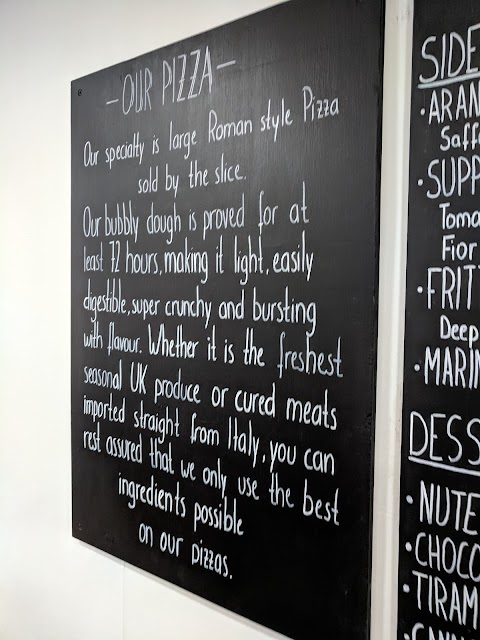 -OUR PIZZA-
Our specialty is large Roman style Pizza
sold by the slice.
Our bubbly dough is proved for at
least 72 hours, making it light, easily
digestible, super crunchy and bursting
with flavour. Whether it is the freshest
seasonal UK produce or cured meats
imported straight from Italy, you can
rest assured that we only use the best
ingredients possible
on our pizzas.
SIDE
·ARAN
Saff
·SUPP
Toma
Fior
·FRIT
Deep
·MARIN
DESS
·NUTE
·CHOCO
·TIRAM